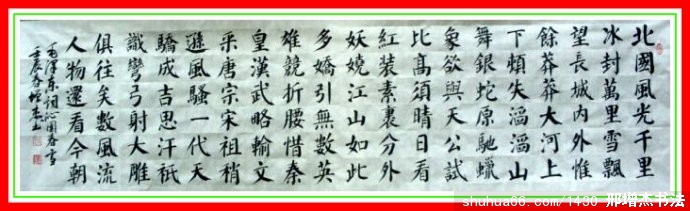 北國風光千里
冰封萬里雪飄
望長城內外惟
餘莽莽大河上
下頓失滔滔山
舞銀蛇原馳蠟
象欲與天公試
比高須晴日看
紅裝素裹分外
妖嬈江山如此
多嬌引無數英
雄競折腰惜秦
皇漢武略輸文
采唐宗宋祖稍
遜風騷一代天
驕成吉思汗祇
識彎弓射大雕
俱往矣數風流
人物還看今朝
毛澤東詞沁園春雪
壬辰春增杰
shuhua66.com/1430 邢增杰书法